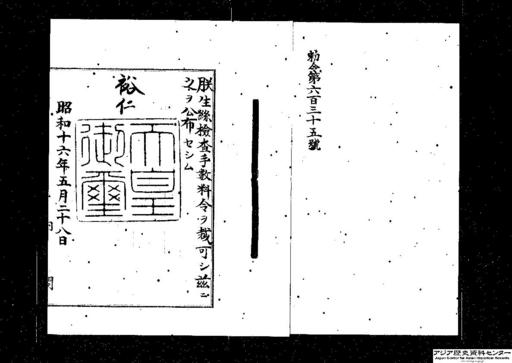 勅令第六百三十五號
朕生絲檢査手數料令ヲ裁可シ茲ニ
之ヲ公布セシム
裕仁
天皇御璽
昭和十六年五月二十八日
アジア歴史資料センター
Japan Center for Asian Historical Records